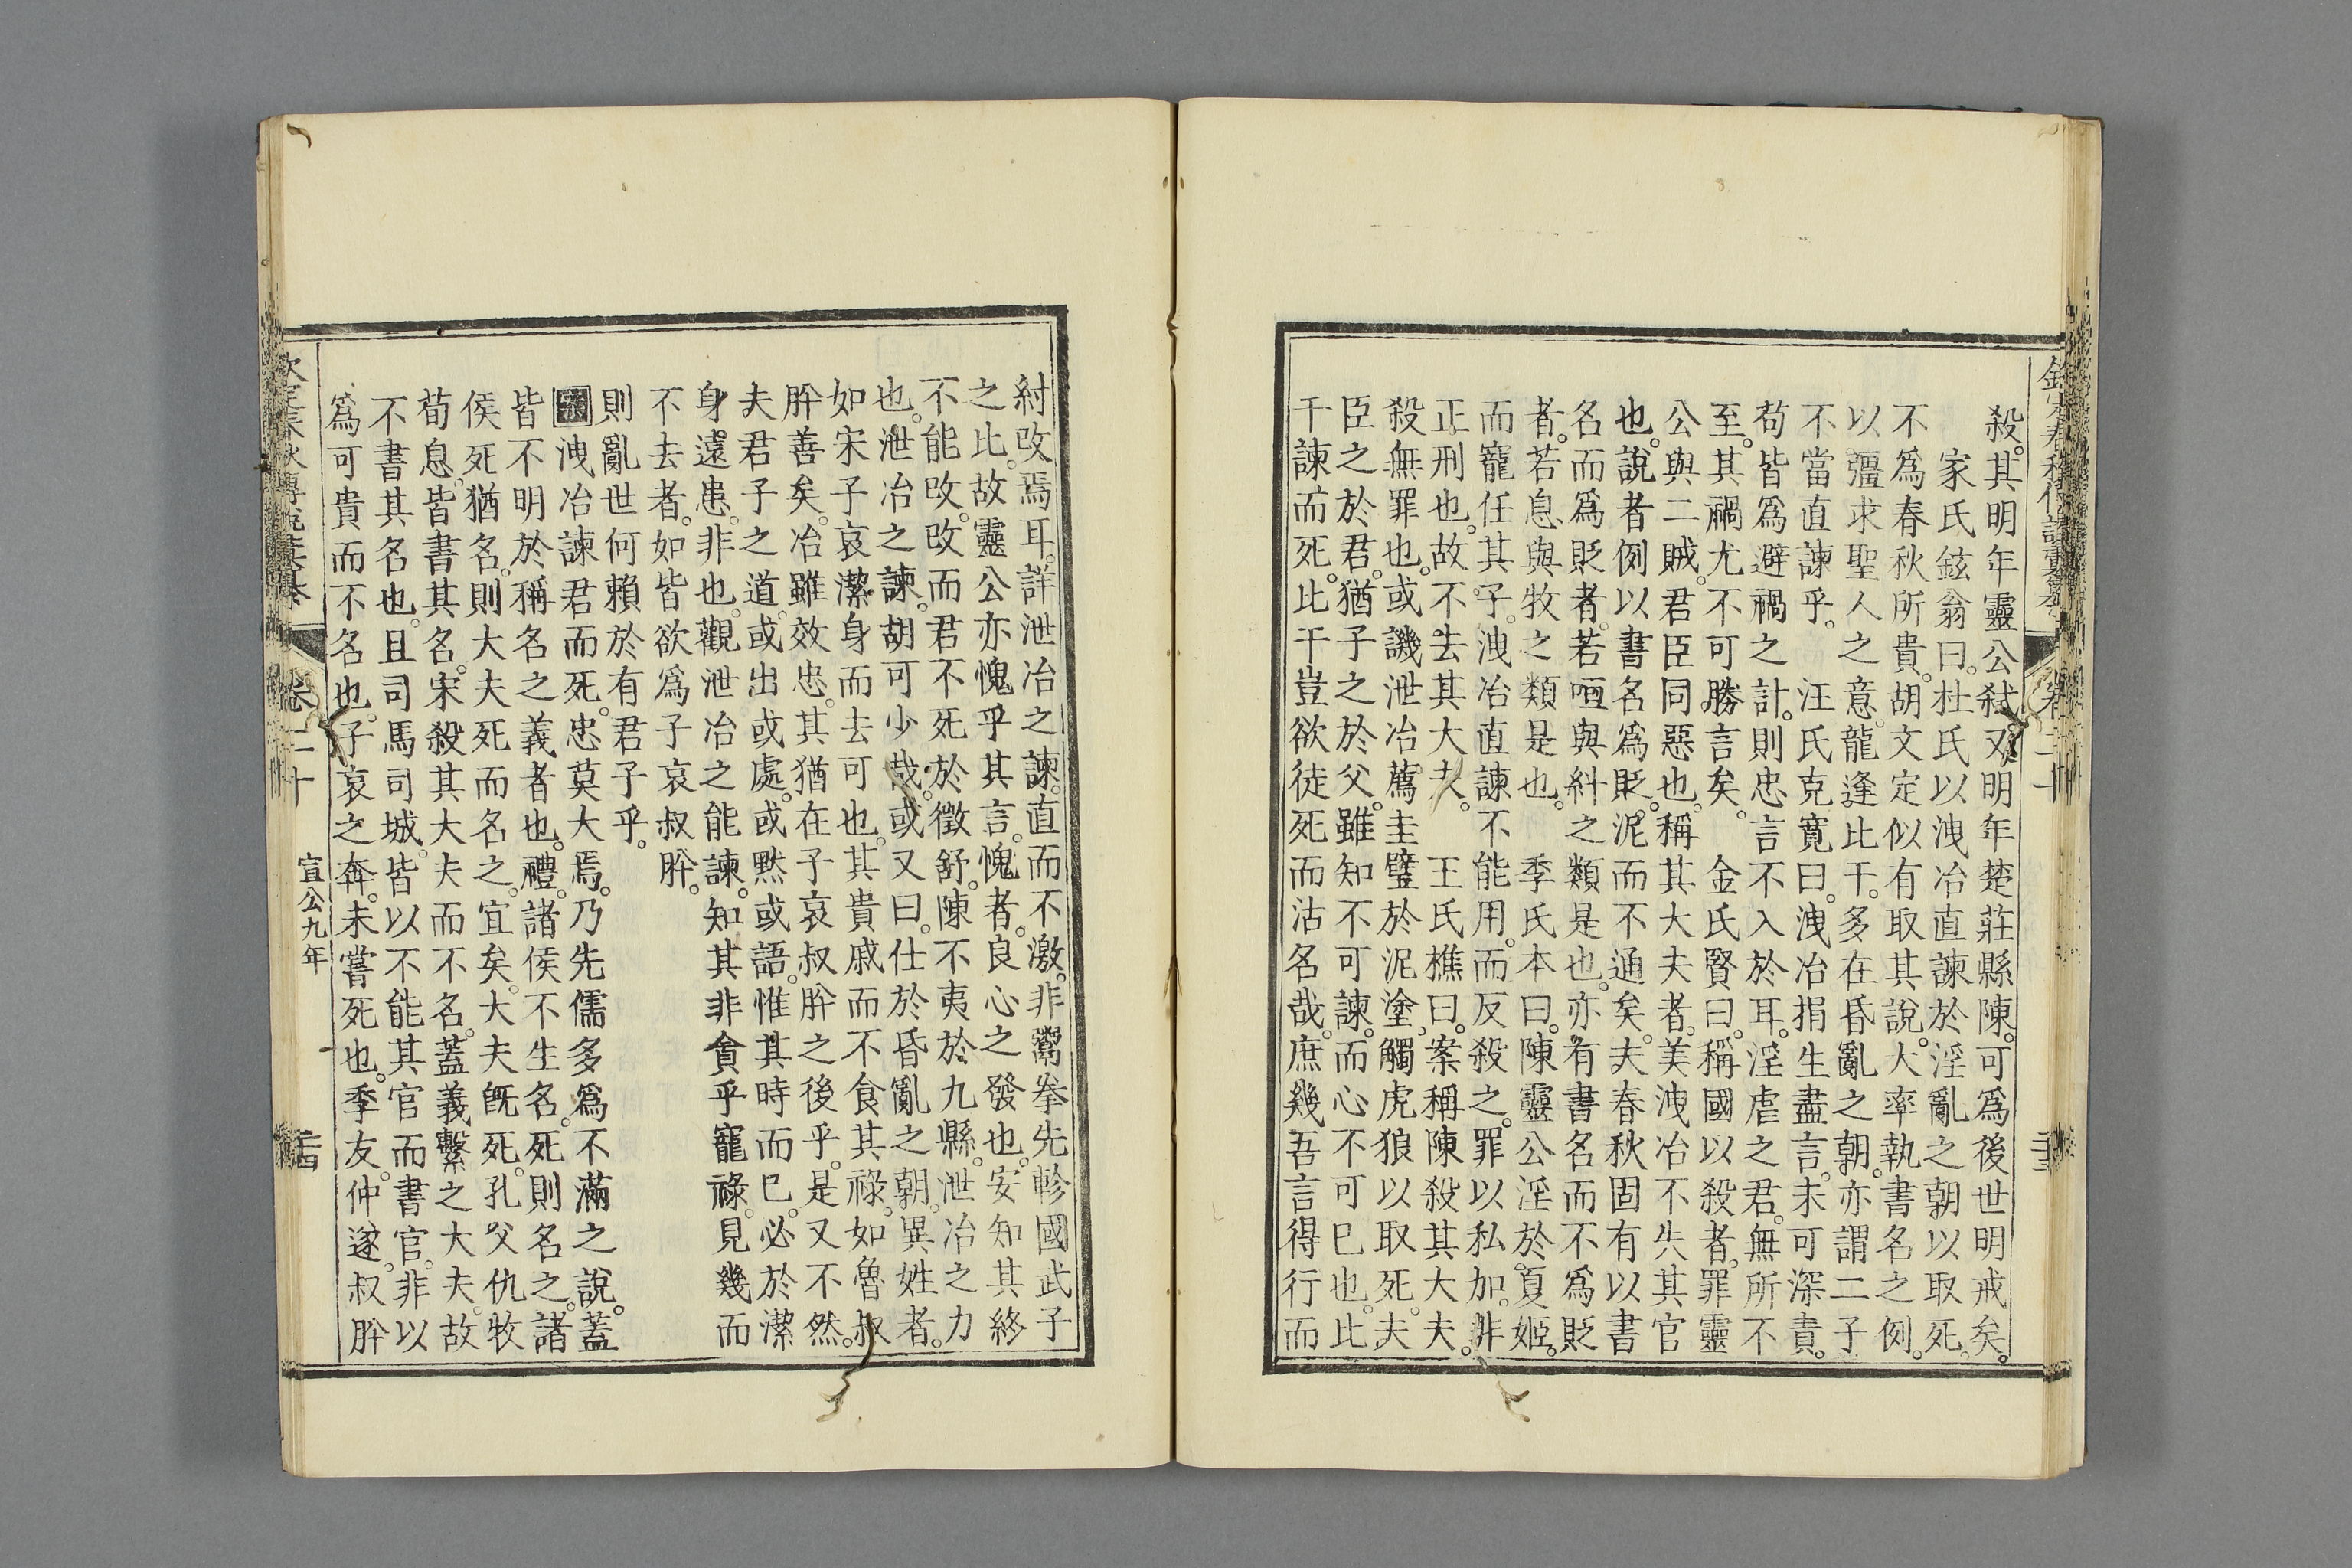 殺。其明年靈公弑。又明年楚莊縣陳。可爲後世明戒矣。
家氏鉉翁曰。杜氏以洩冶直諫於淫亂之朝以取死。
不爲春秋所貴。胡文定似有取其說。大率執書名之例。
以彊求聖人之意。龍逢比干。多在昏亂之朝。亦謂二子
不當直諫乎。汪氏克寬曰。洩冶捐生盡言。未可深責。
苟皆爲避禍之計。則忠言不入於耳。淫虐之君。無所不
至。其禍尤不可勝言矣。金氏賢曰。稱國以殺者。罪靈
公與二賊。君臣同惡也。稱其大夫者。美洩冶不失其官
也。說者例以書名爲貶。泥而不通矣。夫春秋固有以書
名而爲貶者。若咺與糾之類是也。亦有書名而不爲貶
者。若息與牧之類是也。季氏本曰。陳靈公淫於夏姬。
而寵任其子。洩冶直諫不能用。而反殺之。罪以私加。非
正刑也。故不去其大夫。王氏樵曰。案稱陳殺其大夫。
殺無罪也。或譏泄冶薦圭璧於泥塗。觸虎狼以取死。夫
臣之於君。猶子之於父。雖知不可諫。而心不可已也。比
干諫而死。比干豈欲徒死而沽名哉。庶幾吾言得行而
紂改焉耳。詳泄冶之諫。直而不激。非鬻拳先軫國武子
之比。故靈公亦愧乎其言。愧者。良心之發也。安知其終
不能改。改而君不死於徵舒。陳不夷於九縣。泄冶之力
也。泄冶之諫。胡可少哉。或又曰。仕於昏亂之朝。異姓者。
如宋子哀潔身而去可也。其貴戚而不食其祿。如魯叔
肸善矣。冶雖效忠。其猶在子哀叔肸之後乎。是又不然。
夫君子之道。或出或處。或默或語。惟其時而已。必於潔
身遠患。非也。觀泄冶之能諫。知其非貪乎寵祿。見幾而
不去者。如皆欲爲子哀叔肸。
則亂世何賴於有君子乎。
案洩冶諫君而死。忠莫大焉。乃先儒多爲不滿之說。蓋
皆不明於稱名之義者也。禮。諸侯不生名。死則名之。諸
侯死猶名。則大夫死而名之。宜矣。大夫旣死。孔父仇牧
荀息。皆書其名。宋殺其大夫而不名。蓋義繫之大夫。故
不書其名也。且司馬司城。皆以不能其官而書官。非以
爲可貴而不名也。子哀之奔。未嘗死也。季友。仲遂。叔肸
卷二十
宣公九年